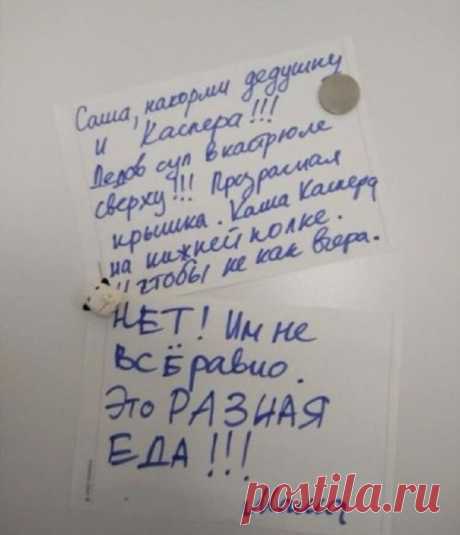 Саша, накорми дедушку
и Каспера!!!
Дедов суп в кастрюле
сверху!!! Прозрачная
крышка. Каша Каспера
на нижней полке.
И чтобы не как вчера.
НЕТ! Им не
ВСЁ равно.
Это РАЗНАЯ
ЕДА!!!
postila.ru